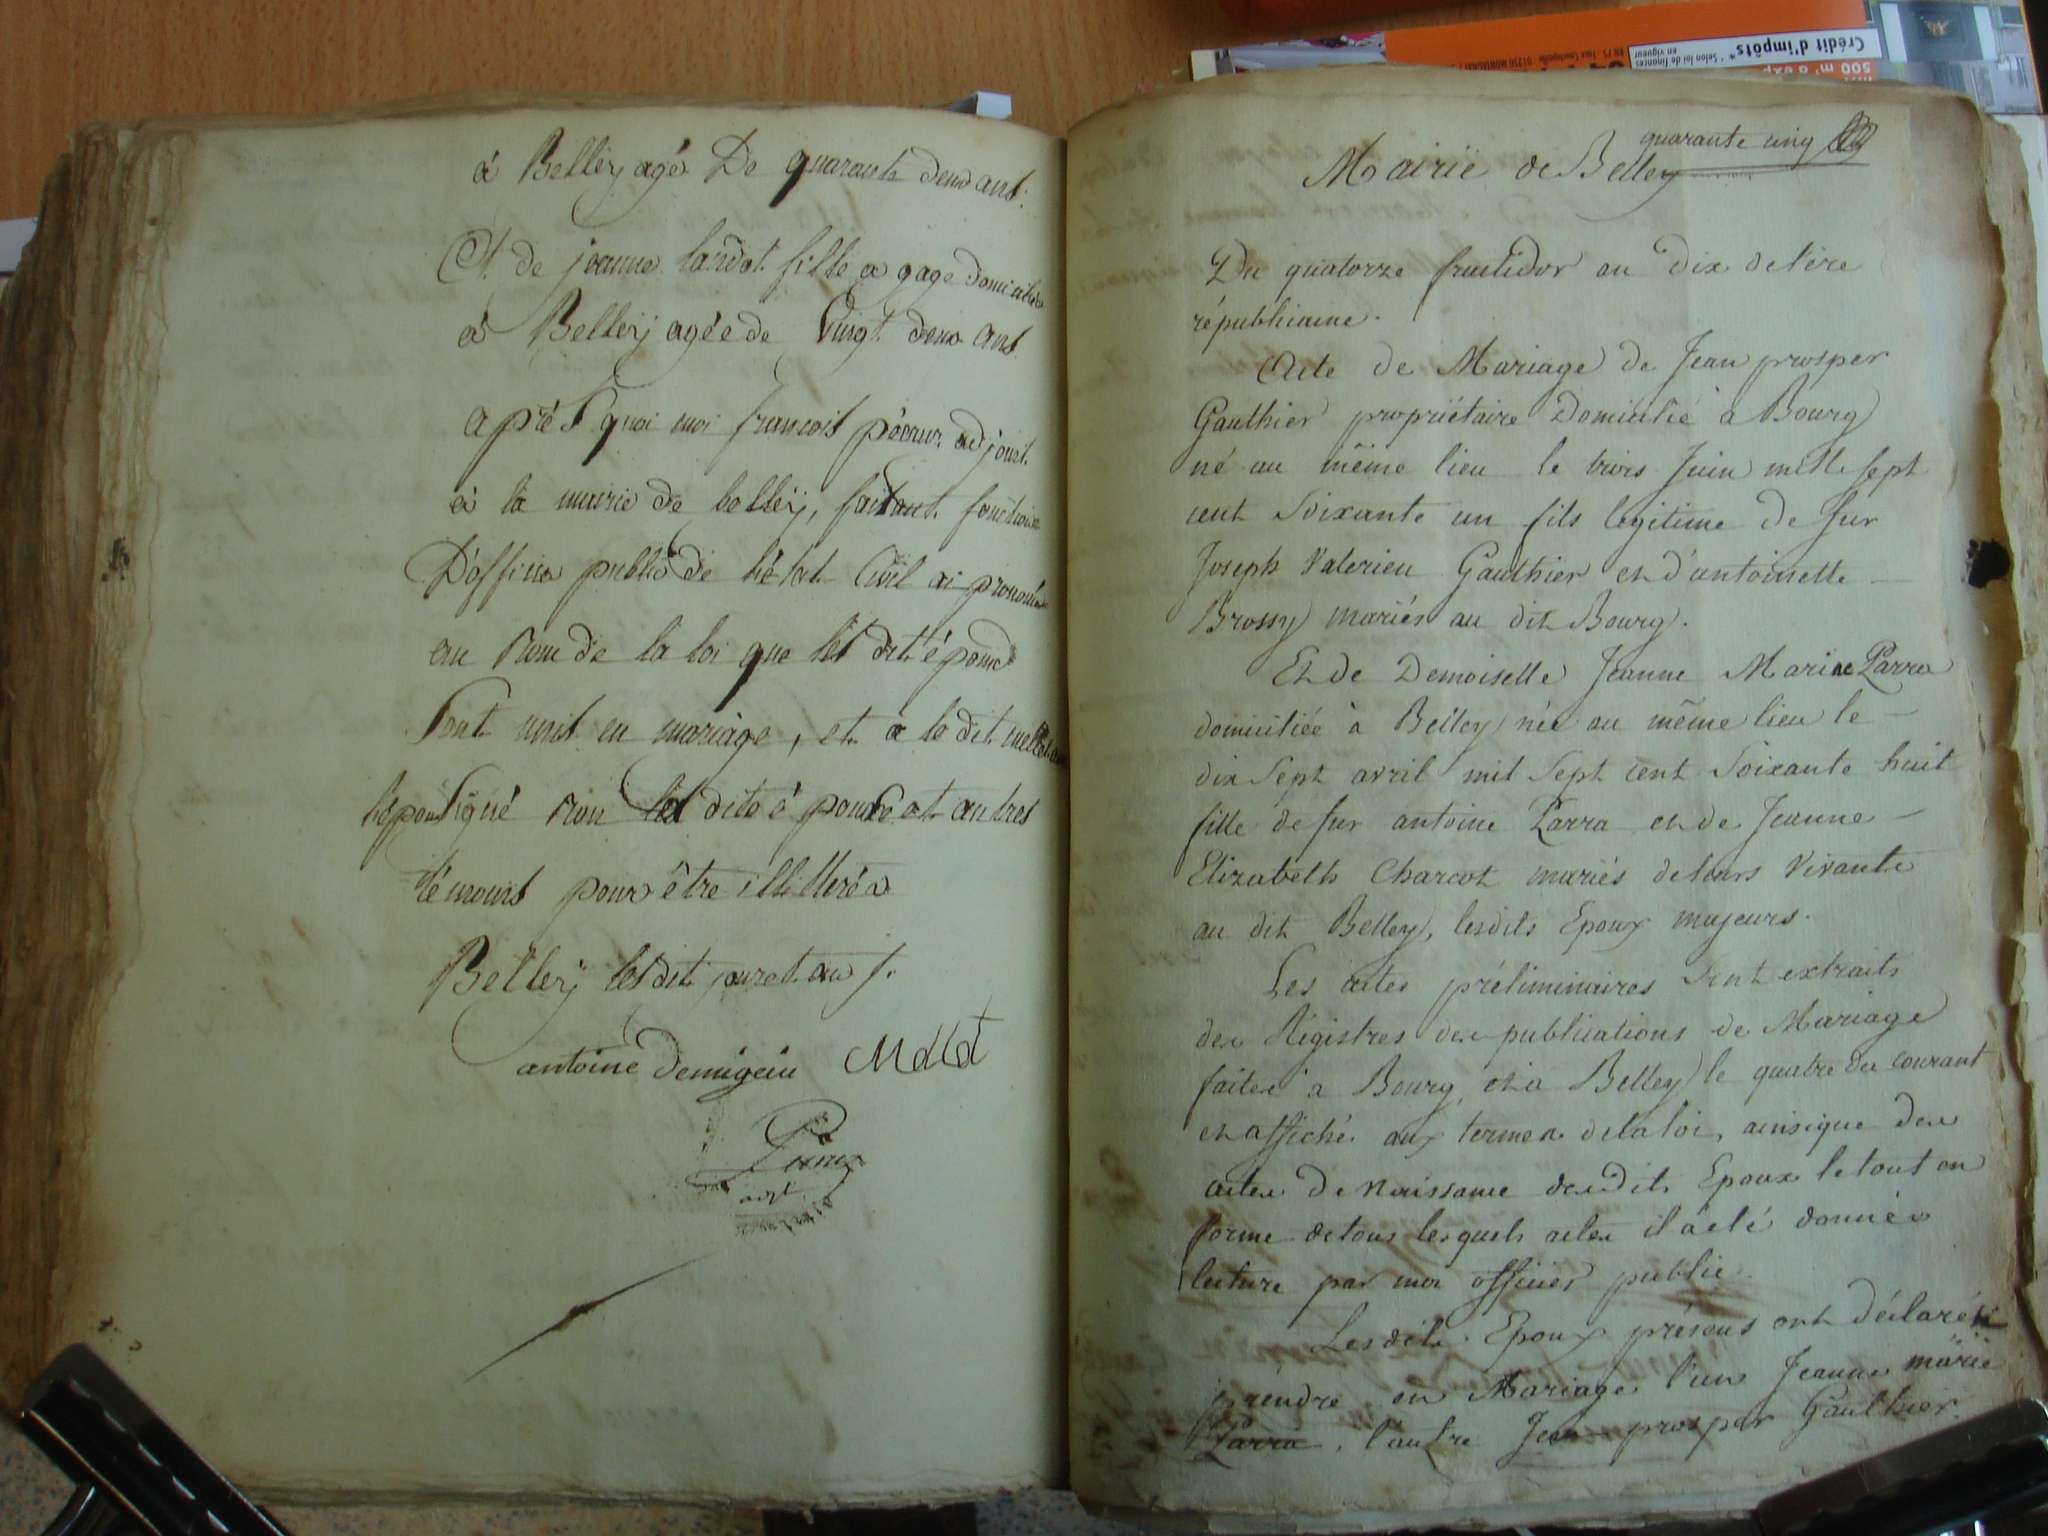 à Belleÿ agé De quarante deux ans.
Et de jeanne landot fille a gage domiciliée
à Belleÿ agée de Vingt deux ans.
après quoi moi françois adjoint
à la mairie de belleÿ, faisant fonctions
D'officier public de l'état Civil ai prononcé
au Nom de la loi que les dits époux
Sont unis en mariage, et a le dit
l'époux Signé non la dite épouse et autres
témoins pour être illitterés
Belleÿ les dits jour et an f.
antoine demigeiu
adjt
quarante cinq
Mairie de Belley
Du quatorze fructidor an dix de l'ére
républicaine.
Acte de Mariage de Jean prosper
Gauthier propriétaire Domicilié à Bourg
né au même lieu le trois Juin mille sept
cent Soixante un fils legitime de fur
Joseph Valerien Gauthier et d'antoinette
Brossy mariés au dit Bourg.
Et de Demoiselle Jeanne Marie Parra
domiciliée à Belley née au même lieu le
dix Sept avril mil Sept cent Soixante huit
fille de fur antoine Parra et de Jeanne
Elizabeth Charcot mariés de leurs Vivants
au dit Belley, lesdits Epoux majeurs.
Les actes préliminaires Sont extraits
des Régistres des publications de Mariage
faites à Bourg et à Belley le quatre du courant
et affiché aux termes de la loi, ainsi que des
actes De Naissance desdits Epoux le tout en
forme de tous lesquels actes il a été donnée
lecture par moi officier public.
Lesdits Epoux présens ont déclarés
prendre en Mariage l'un Jeanne marie
Parra, l'autre Jean prosper Gauthier.
Crédit d'impôts
* Selon loi de finances
en vigueur
500 m² d'exp